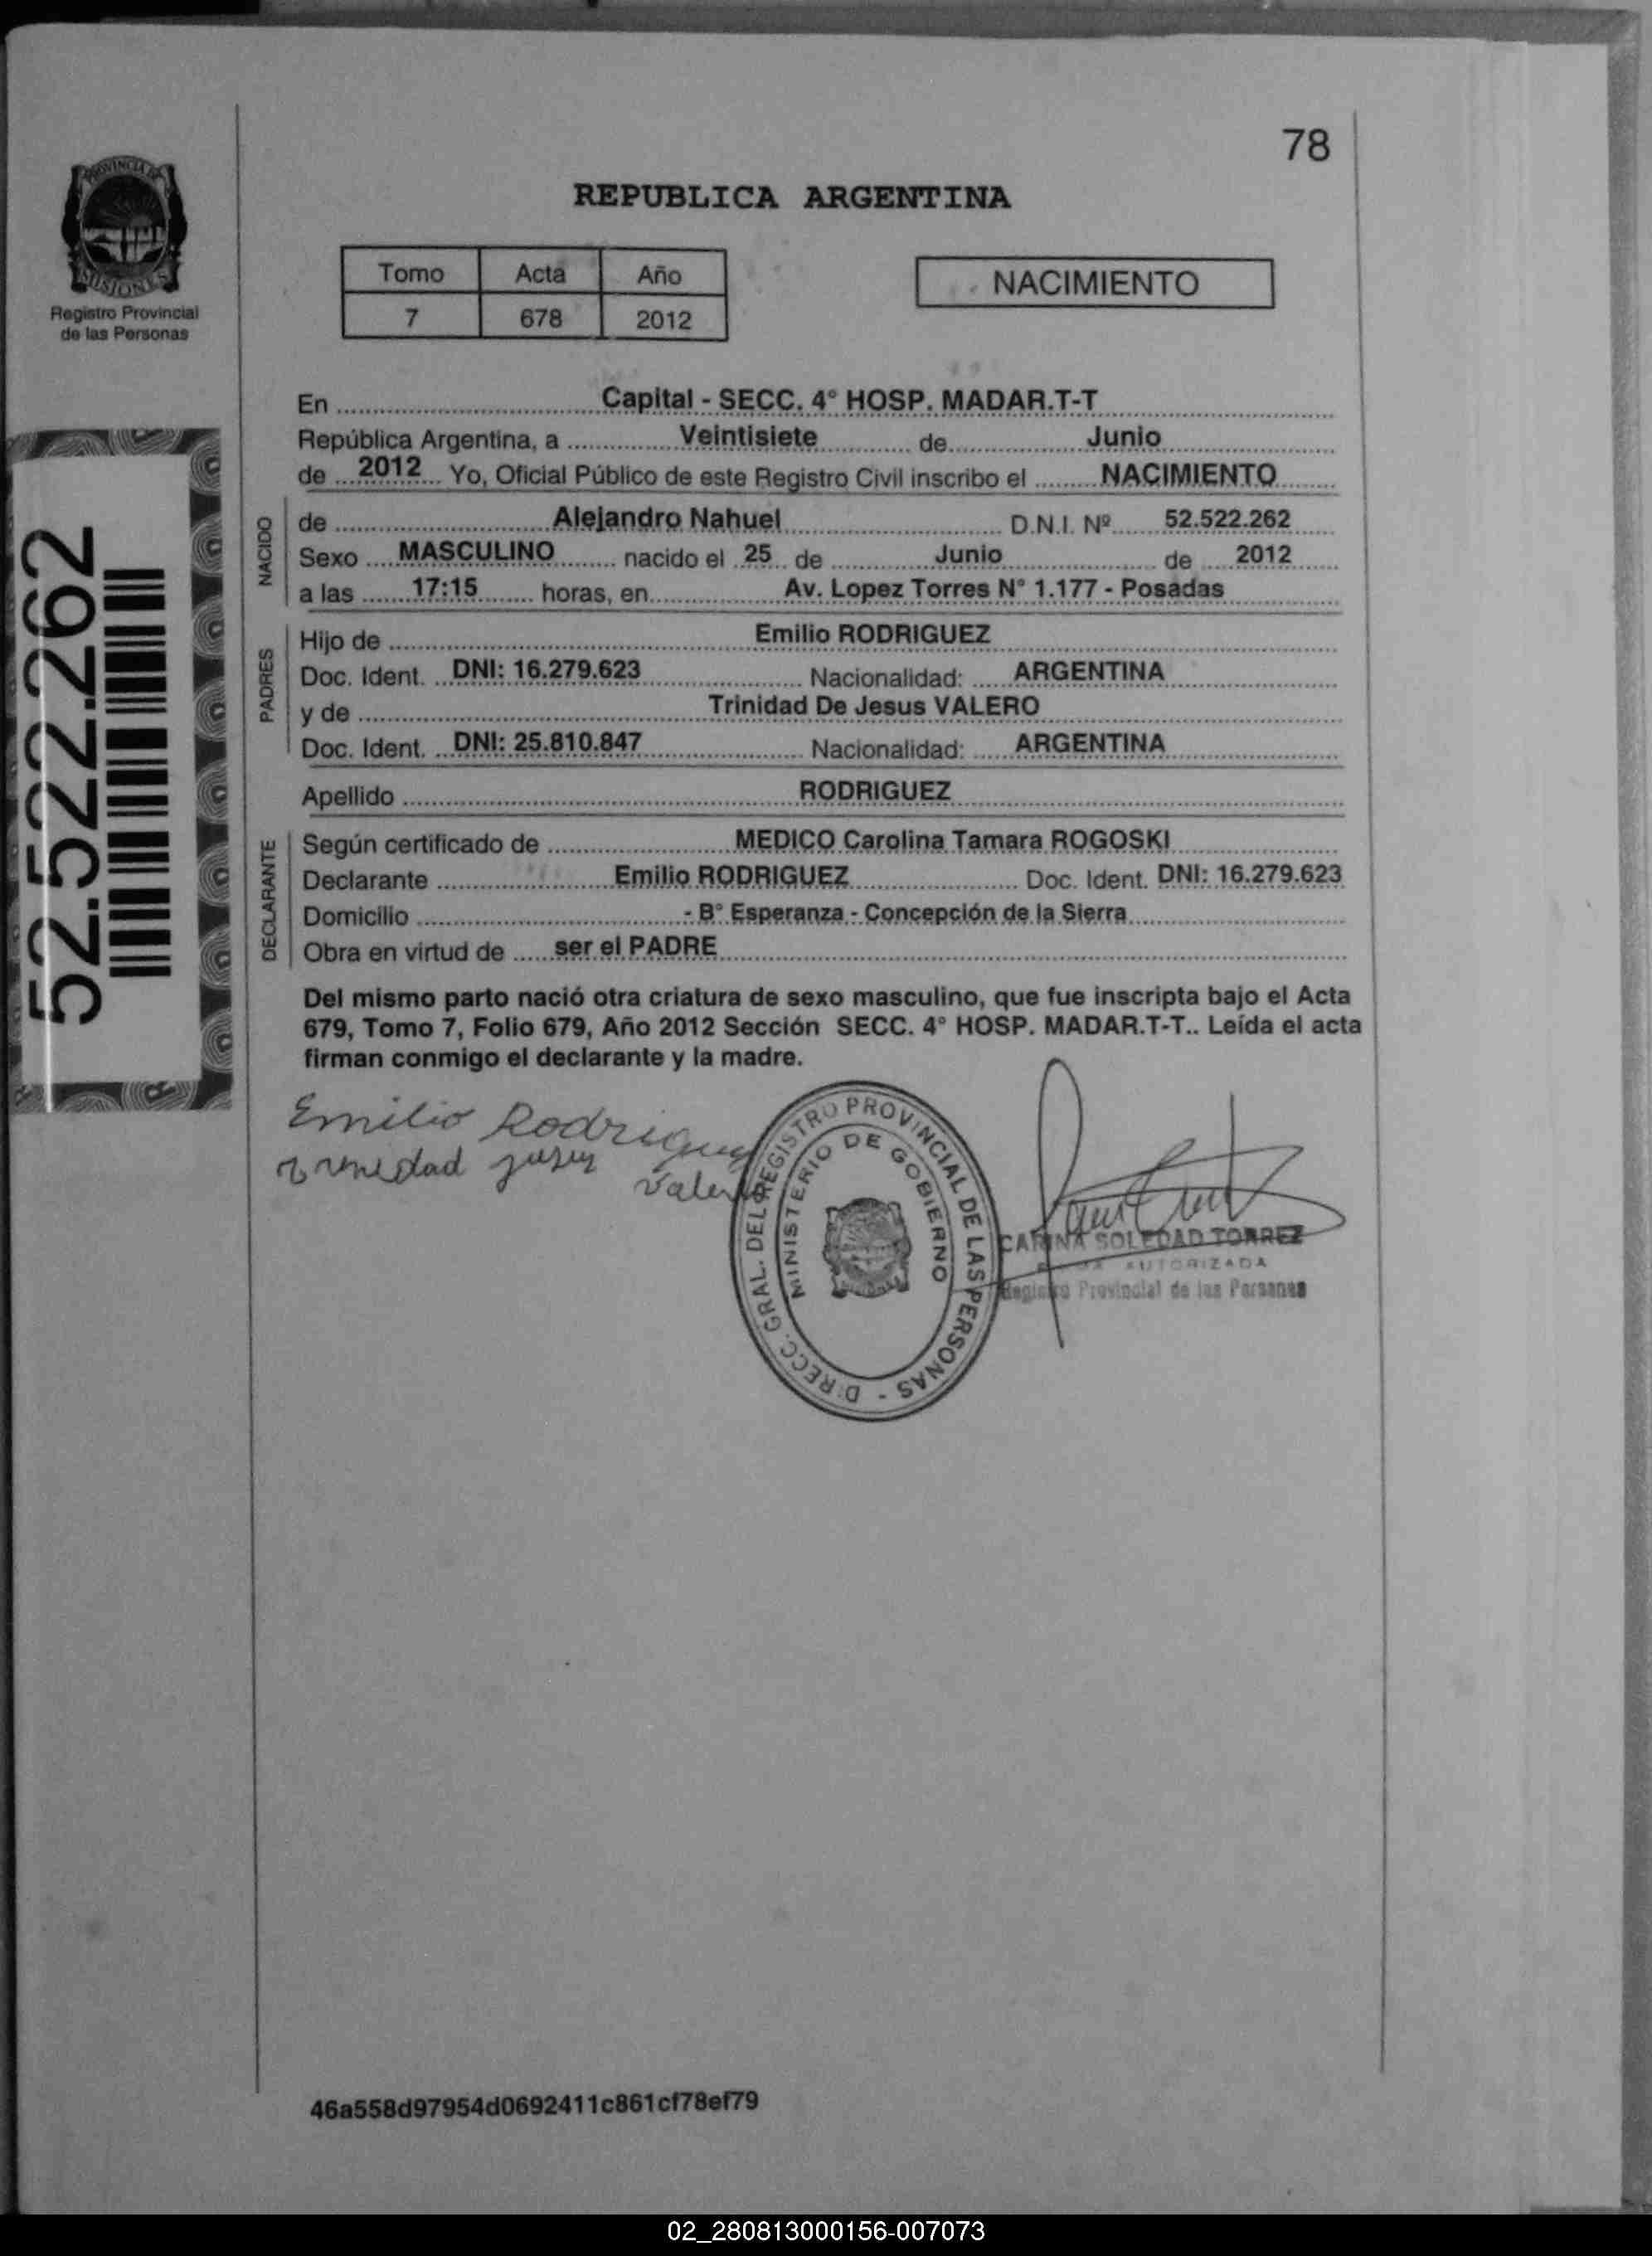 78
PROVINCIA DE
MISIONES
Registro Provincial
de las Personas
REPUBLICA ARGENTINA
Tomo Acta Año
7 678 2012
NACIMIENTO
En Capital - SECC. 4° HOSP. MADAR.T-T
República Argentina, a Veintisiete de Junio
de 2012 Yo, Oficial Público de este Registro Civil inscribo el NACIMIENTO
NACIDO
de Alejandro Nahuel D.N.I. Nº 52.522.262
Sexo MASCULINO nacido el 25 de Junio de 2012
a las 17:15 horas, en Av. Lopez Torres N° 1.177 - Posadas
PADRES
Hijo de Emilio RODRIGUEZ
Doc. Ident. DNI: 16.279.623 Nacionalidad: ARGENTINA
y de Trinidad De Jesus VALERO
Doc. Ident. DNI: 25.810.847 Nacionalidad: ARGENTINA
Apellido RODRIGUEZ
DECLARANTE
Según certificado de MEDICO Carolina Tamara ROGOSKI
Declarante Emilio RODRIGUEZ Doc. Ident. DNI: 16.279.623
Domicilio - B° Esperanza - Concepción de la Sierra
Obra en virtud de ser el PADRE
Del mismo parto nació otra criatura de sexo masculino, que fue inscripta bajo el Acta
679, Tomo 7, Folio 679, Año 2012 Sección SECC. 4° HOSP. MADAR.T-T.. Leída el acta
firman conmigo el declarante y la madre.
52.522.262
Emilio Rodriguez
DIRECC. GRAL. DEL REGISTRO PROVINCIAL DE LAS PERSONAS -
MINISTERIO DE GOBIERNO
CARINA SOLEDAD TORREZ
AUTORIZADA
Registro Provincial de las Personas
46a558d97954d0692411c861cf78ef79
02_280813000156-007073